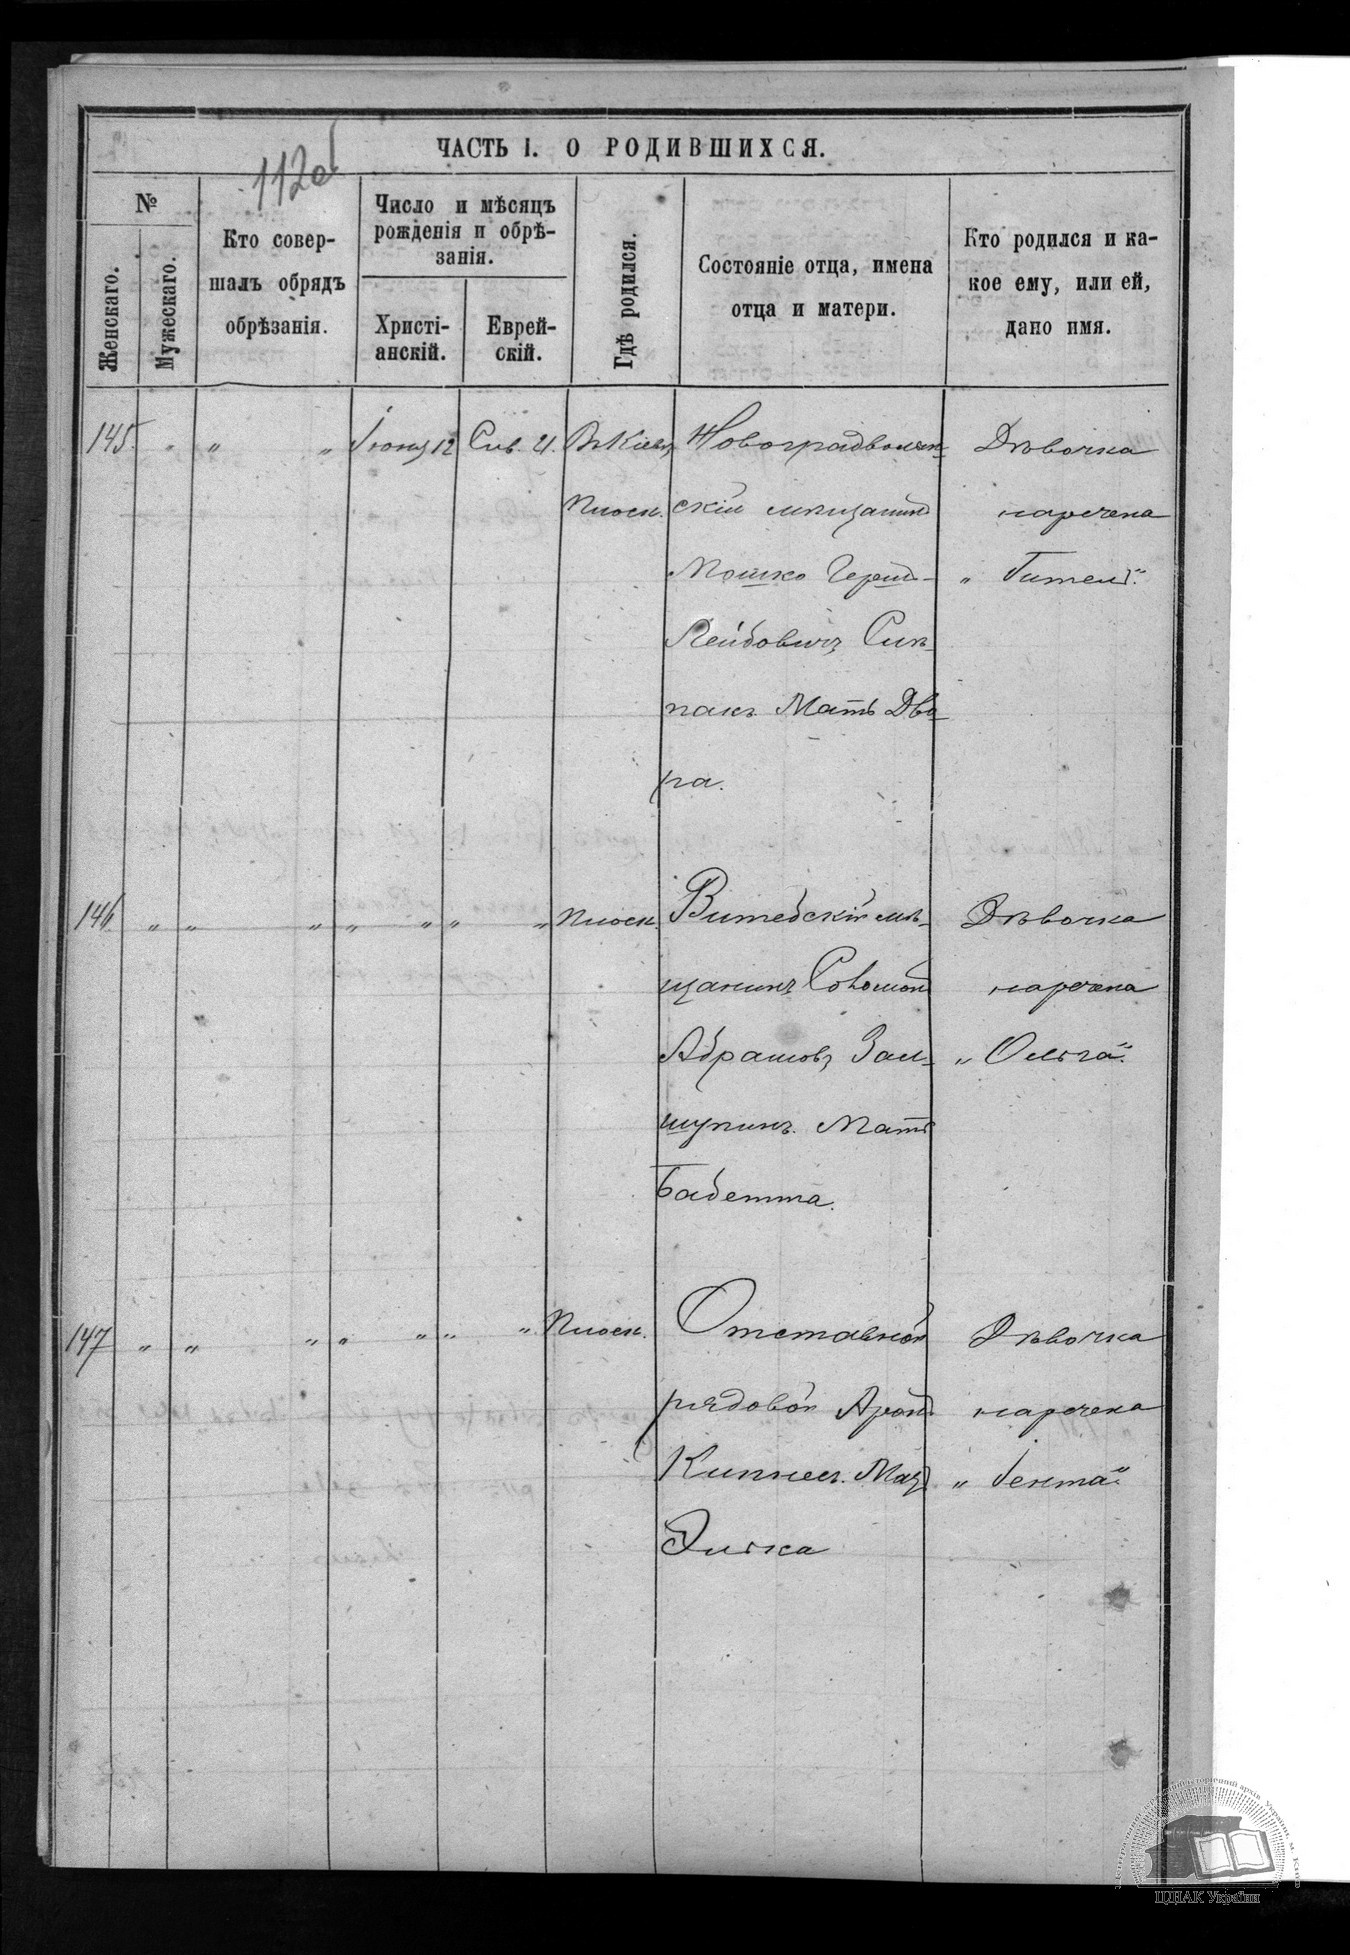 112об
ЧАСТЬ I. О РОДИВШИХСЯ.
№
Женскаго.
Мужескаго.
Кто совер-
шалъ обрядъ
обрѣзанія.
Число и мѣсяцъ
рожденія и обрѣ-
занія.
Христі-
анскій.
Еврей-
скій.
Гдѣ родился.
Состояніе отца, имена
отца и матери.
Кто родился и ка-
кое ему, или ей,
дано имя.
145. " " " Іюня 12 Сив. 21. Въ Кіевѣ Новоградволын-
скій мѣщанинъ
Мошко Герш-
Лейбовичъ Сип-
пакъ Мать Дво
ра.
Плоск.
Дѣвочка
наречена
„Гитель“.
146 " " " " " " " Плоск. Витебскій мѣ-
щанинъ Соломонъ
Абрамовъ Зал-
шупинъ. Мать
Бабетта.
Дѣвочка
наречена
„Ольга“.
147 " " " " " " " Плоск. Отставной
рядовой Аронъ
Кипнесъ. Мать
Элька
Дѣвочка
наречена
„Іента“
ЦДІАК України